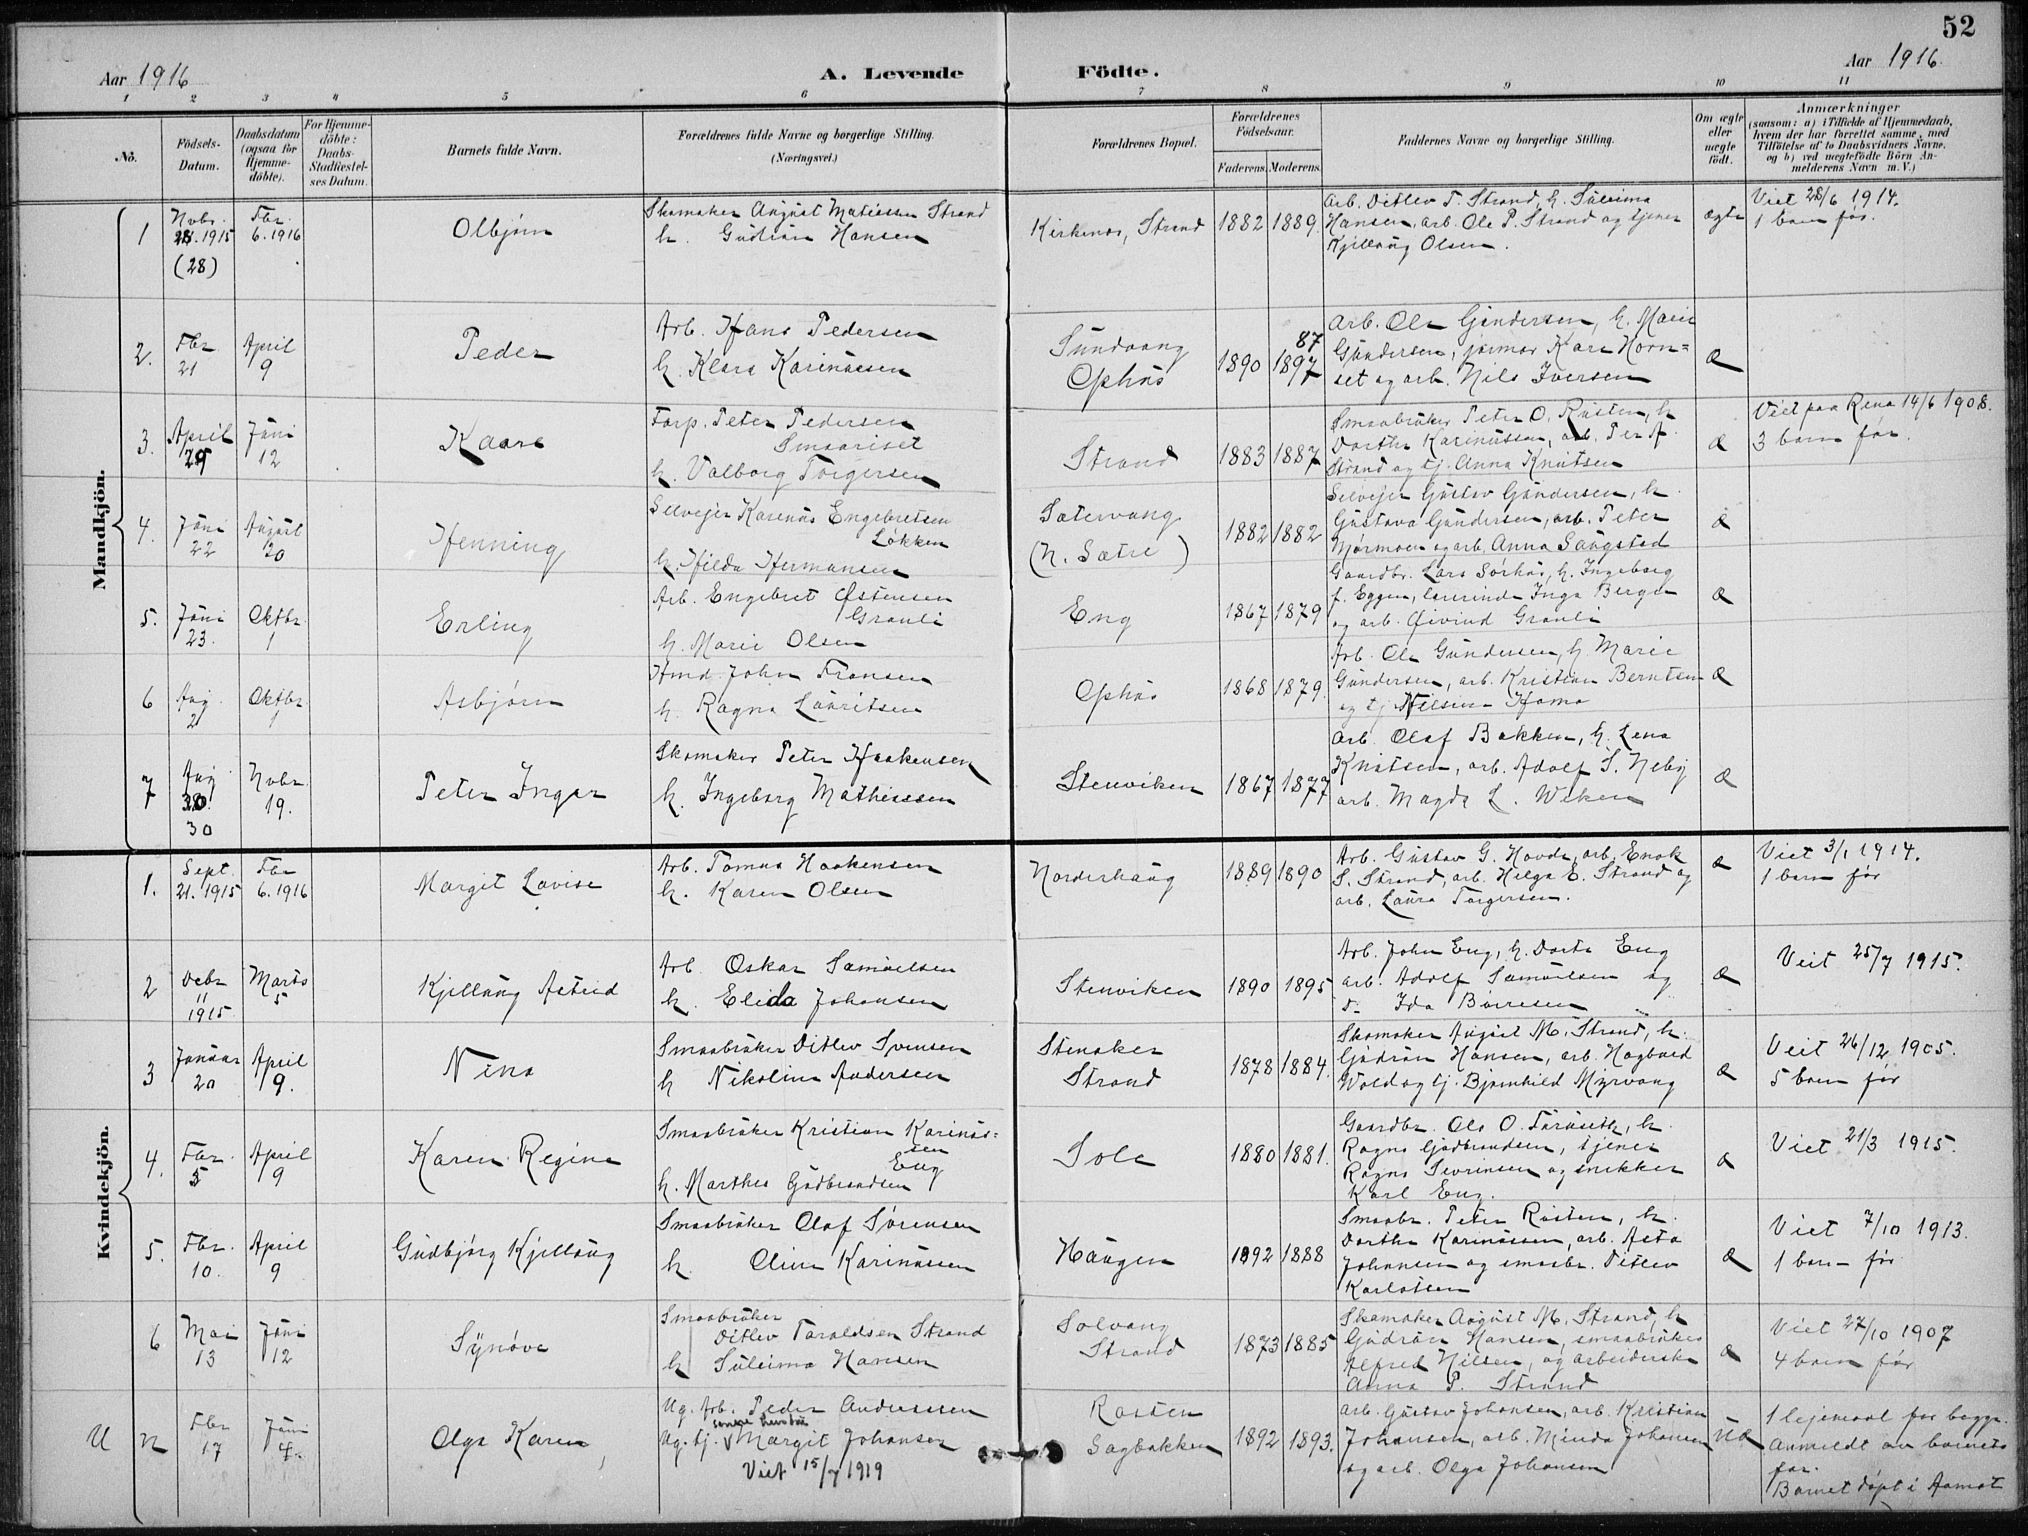 52
Aar 1916
A. Levende Födte.
Aar 1916
1 2 3 4 5 6 7 8 9 10 11
No.
Födsels-Datum.
Daabsdatum (ogsaa for Hjemmedöbte).
For Hjemmedöbte: Daabs-Stadfæstelses Datum.
Barnets fulde Navn.
Forældrenes fulde Navne og borgerlige Stilling. (Næringsvei.)
Forældrenes Bopæl.
Forældrenes Födselsaar.
Faderens. Moderens.
Faddernes Navne og borgerlige Stilling.
Om ægte eller uægte födt.
Anmærkninger
(saasom: a) i Tilfælde af Hjemmedaab, hvem der har forrettet samme, med Tilföielse af to Daabsvidners Navne, og b) ved uægtefödte Börn Anmelderens Navn m. V.)
Mandkjön.
1 Novbr. 28. 1915 (28)
Fbr. 6. 1916
Olbjørn
Skomaker August Matiessen Strand
h. Gudrun Hansen
Kirkenær, Strand
1882 1889
Arb. Ditlev T. Strand, h. Suleima
Hansen, arb. Ole P. Strand og tjener
Kjellaug Olsen.
ægte
Viet 28/6 1914.
1 barn før.
2. Fbr 21
April 9
Peder
Arb. Hans Pedersen
h. Klara Karinusen
Sundvang
Ophus
1890 1897 87
Arb. Ole Gundersen, h. Marie
Gundersen, Kare Horn=
set og arb. Nils Iversen
Æ
3. April 29
Juni 12
Kaare
Forp. Peter Pedersen
Smaariset
h. Valborg Torgersen
Strand
1883 1887
Smaabruker Peter O. Rusten, h
Dorthe Karinussen, arb. Per A.
Strand og tj. Anna Knutsen
Æ
Viet paa Rena 14/6 1908.
3 barn før.
4. Juni 22
August 20
Henning
Selveier Karenus Engebretsen
Løkken
h. Hilda Hermansen
Sætervang
(N. Sætre)
1882 1882
Selveier Gustav Gundersen, h.
Gustava Gundersen, arb. Peter
Mørmoen og arb. Anna Saugstad
Æ
5. Juni 23.
Oktbr. 1
Erling
Arb. Engebret Østensen
Granli
h. Marie Olsen
Eng
1867 1879
Gaardbr. Lars Sørhus, h. Ingeborg
f. Eggen, lærerinde Inga Berger
og arb. Øivind Granli
Æ
6 Aug. 2
Oktbr. 1
Asbjørn
Hmd. John Fransen
h. Ragna Lauritsen
Ophus
1868 1879.
Arb. Ole Gundersen, h. Marie
Gundersen, arb. Kristian Berntsen
og tj. Nilsine Hamo
Æ
7 Aug. 30 30
Novbr. 19.
Peter Ingar
Skomaker Peter Haakensen
h. Ingeborg Mathiessen
Stenviken
1867 1877
Arb. Olaf Bakken, h. Lena
Knutsen, arb. Adolf S. Neby
arb. Magda L. Weken
Æ
Kvindekjön.
1. Sept. 21. 1915
Fbr 6. 1916
Margit Lovise
Arb. Tomas Haakensen
h. Karen Olsen
Norderhaug
1889 1890
Arb. Gustav G. Hovde, arb. Enok
S. Strand, arb. Helga E. Strand og
arb. Laura Torgersen.
Æ
Viet 3/1 1914.
1 barn før
2 Decbr 11 1915
Marts 5
Kjellaug Astrid
Arb. Oskar Samuelsen
h. Elida Johansen
Stenviken
1890 1895
Arb. John Eng, h. Dorte Eng
arb. Adolf Samuelsen og
Ida Børresen
Æ
Viet 25/7 1915.
3 Januar 20
April 9.
Nina
Smaabruker Ditlev Svensen
h Nikoline Andersen
Stenaker
Strand
1878 1884.
Skomaker August M. Strand, h.
Gudrun Hansen, arb. Hagbard
Wold og tj. Bjørnhild Myrvang
Æ
Viet 26/12 1905.
5 barn før
4. Fbr. 5
April 9
Karen Regine
Smaabruker Kristian Karinus=
sen
Eng
h. Marthea Gudbrandsen
Sole
1880 1881.
Gaardbr. Ole O. Furuseth, h.
Ragna Gudbrandsen, tjener
Ragna Sevrinsen og snekker
Karl Eng.
Æ
Viet 21/3 1915.
5. Fbr. 10.
April 9
Gudbjørg Kjellaug
Smaabruker Olaf Sørensen
h. Oline Karinussen
Haugen
1892 1888
Smaabr. Peter Rusten, h.
Dorthe Karinussen, arb. Asta
Johansen og smaabr. Ditlev
Karlstsen
Æ
Viet 7/10 1913.
1 barn før
6 Mai 13
Juni 12
Synøve
Smaabruker
Ditlev Taraldsen Strand
h Suleima Hansen
Solvang
Strand
1873 1885
Skomaker August M. Strand, h
Gudrun Hansen, smaabruker
Alfred Nilsen, og arbeiderske
Anna P. Strand
Æ
Viet 27/10 1907
4 barn før
U n Fbr 17
Juni 4.
Olga Karen
Ug. Arb. Peder Andreassen
Ug. tj. Margit Johansen
Viet 15/7 1919
Rasten
Sagbakken
1892 1893.
Arb. Gustav Johansen, arb. Kristian
Johansen, arb. Minda Johansen
og arb. Olga Johansen
UÆ
1 leiemaal for begge.
Anmeldt av barnets
far.
Barnet døpt i Aamot